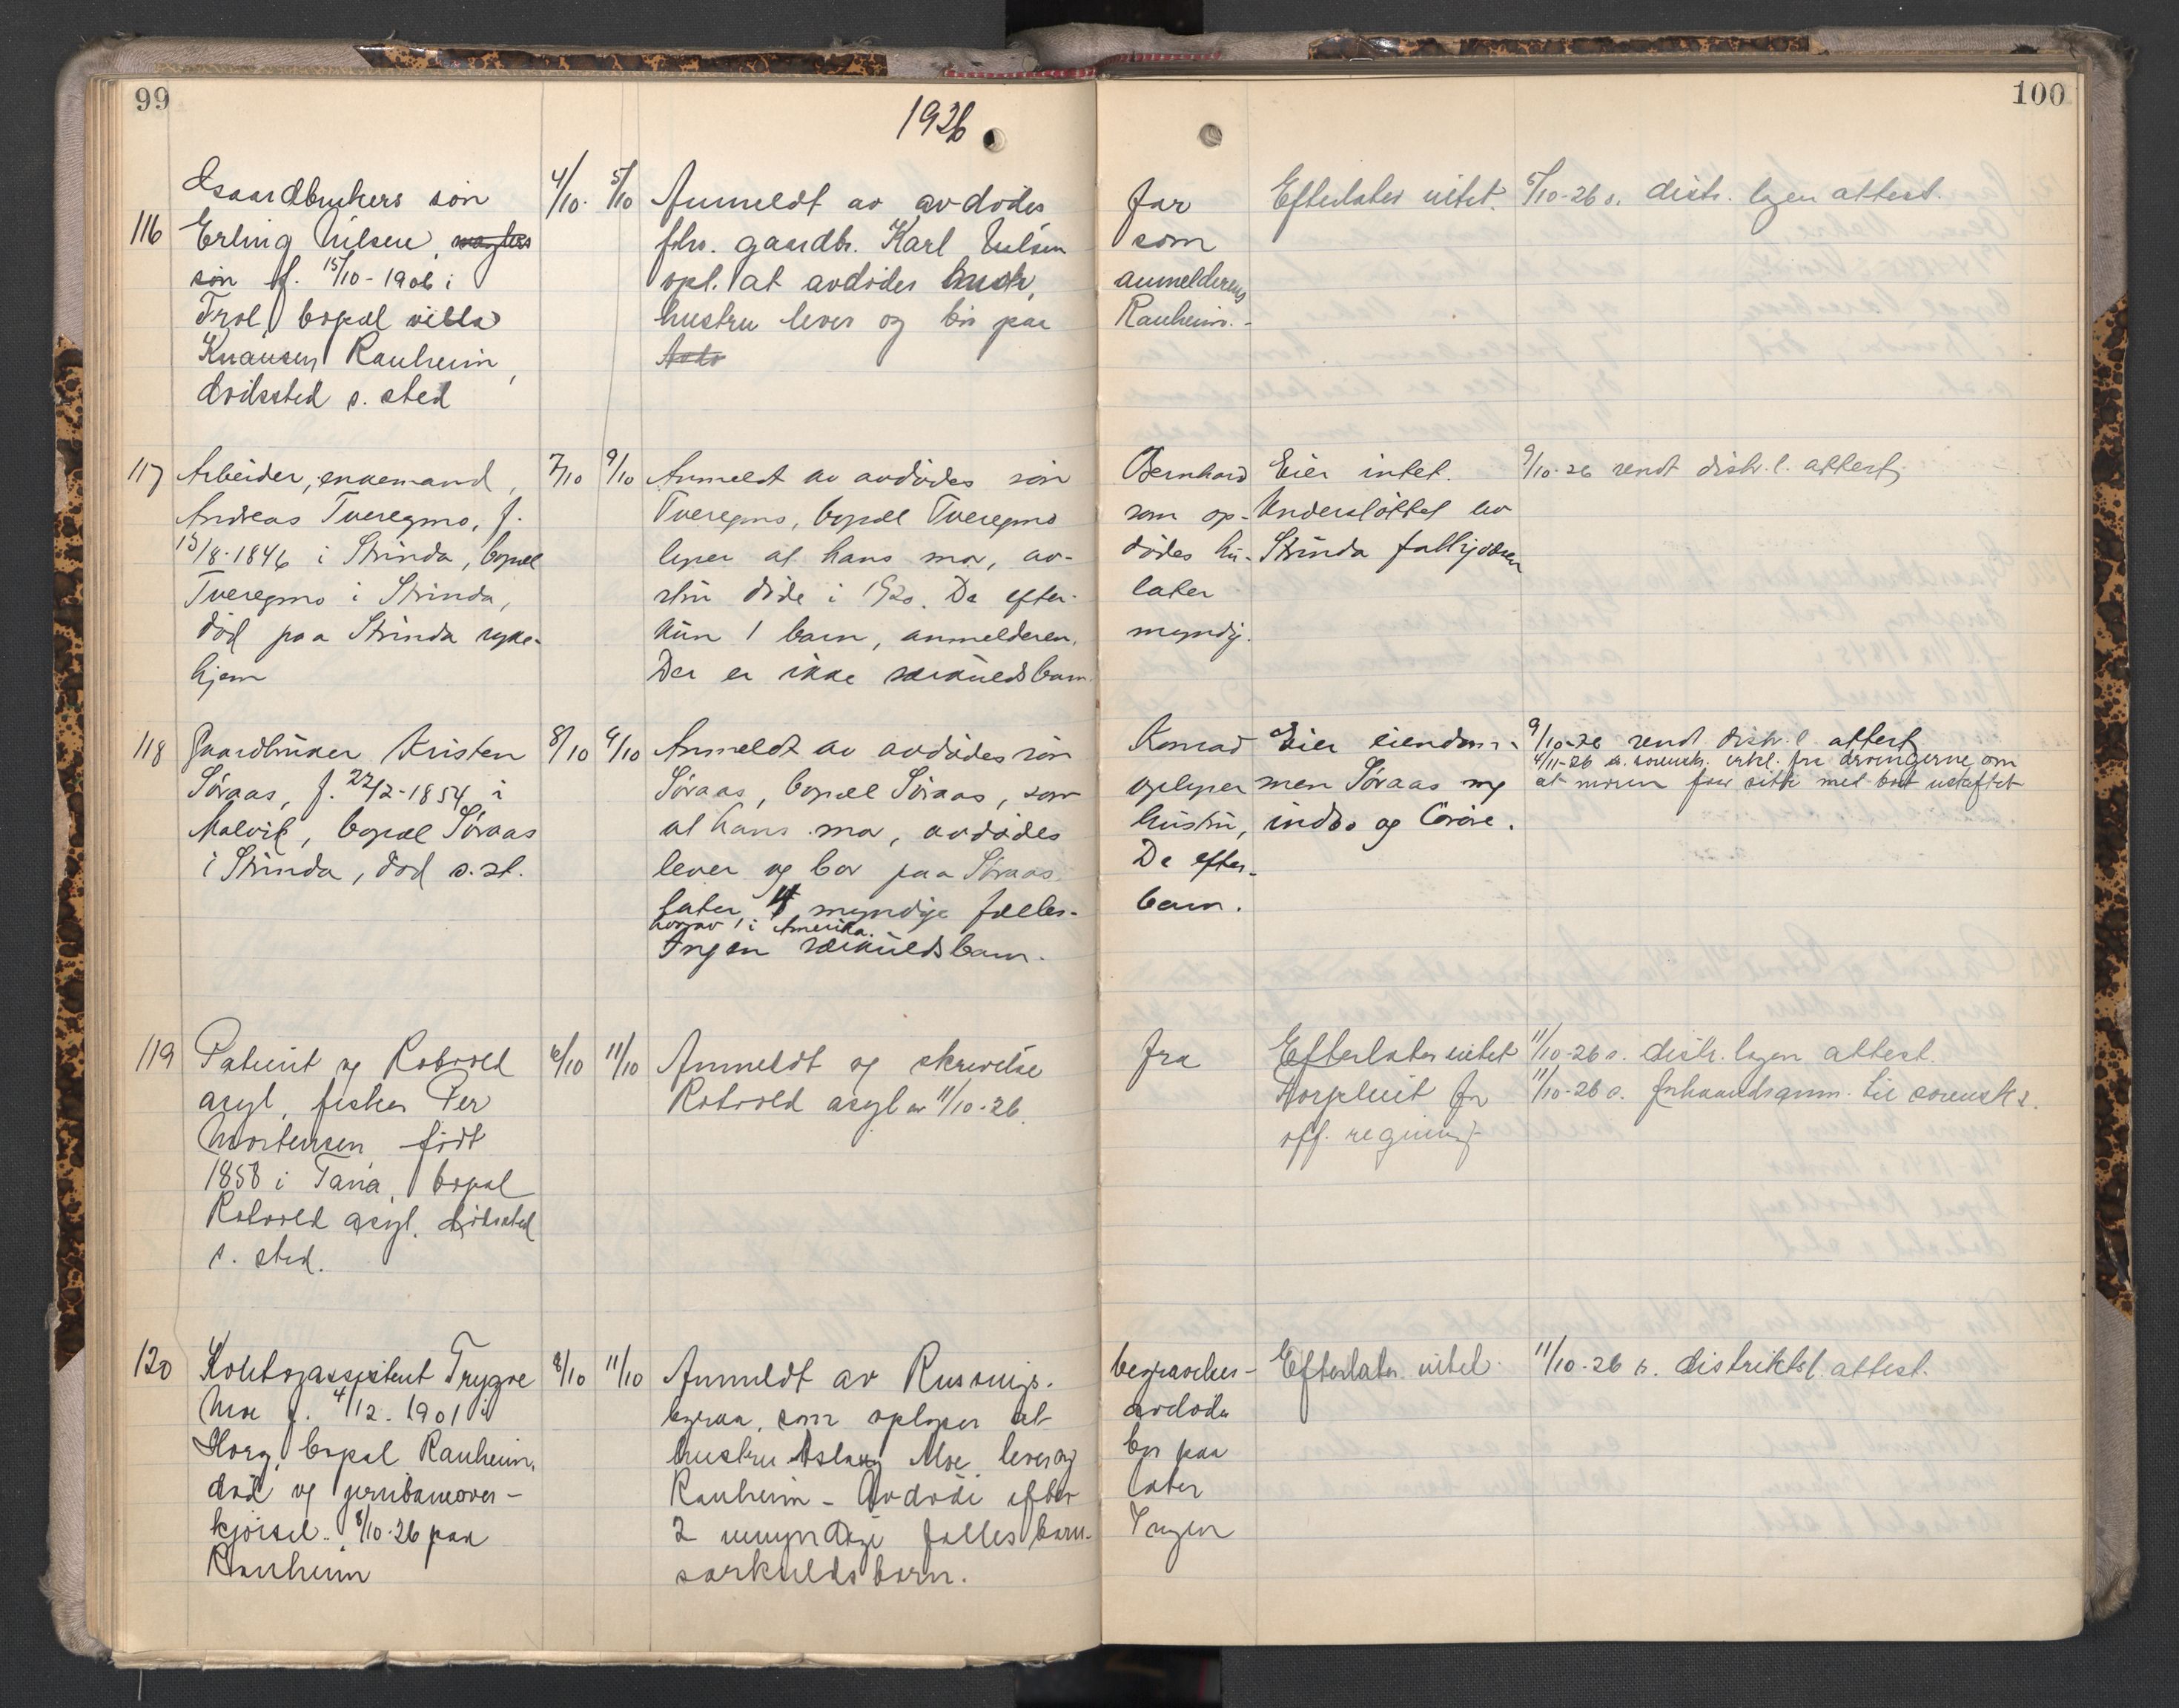 99
1926
100
Gaardbrukers søn 4/10. 5/10 Anmeldt av avdødes far Efterlater intet. 5/10-26 s. distr. lægen attest.
116 Erling Nilsen, fhv. gaardbr. Karl Nilsen som
søn f. 15/10-1906 i opl. at avdødes anmelderens
Frol, bopæl villa hustru lever og bor paa Ranheim.-
Knausen Ranheim,
dødssted s. sted
117 Arbeider, enkemand, 7/10 9/10 Anmeldt av avdødes søn Bernhard Eier intet. 9/10-26 sendt distr. l. attest
Andreas Tveregmo, f. Tveregmo, bopæl Tveregmo som op- Understøttet av
15/8-1846 i Strinda, bopæl lyser at hans mor, av- dødes hu- Strinda fattigvæsen
Tveregmo i Strinda, stru døde i 1920. De efter- later
død paa Strinda syke- kun 1 barn, anmelderen, myndig.
hjem Der er ikke særkuldsbarn
118 Gaardbruker Kristen 8/10 9/10 Anmeldt av avdødes søn Konrad Eier eiendom- 9/10-26 sendt distr. l. attest
4/11-26 s. sorensk. erkl. fra arvingerne om
Søraas, f. 22/2-1854 i Søraas, bopæl Søraas, som oplyser men Søraas og at moren faar sitte med boet uskiftet
Malvik, bopæl Søraas at hans mor, avdødes hustru, indbo og løsøre.
i Strinda, død s. st. lever og bor paa Søraas De efter-
later 4 myndige fælles- barn.
hvorav 1 i Amerika.
Ingen særkuldsbarn.
119 Patient og Rotvold 6/10 11/10 Anmeldt og skrivelse fra Efterlater intet 11/10-26 s. distr. lægen attest.
asyl, fisker Per Rotvold asyl av 11/10-26. for 11/10-26 s. forhaandsanm. til sorensk.
Mortensen født off. regning
1858 i Tana, bopæl
Rotvold asyl. dødssted
s. sted.
120 Kontorassistent Trygve 8/10 11/10 Anmeldt av Russnigs. begravelses- Efterlater intet. 11/10-26 s. distriktsl. attest.
Moe f. 4/12-1901 i byraa, som oplyser at avdøde
Horg, bopæl Ranheim, hustru Aslaug Moe lever og bor paa
død ved jernbaneover- Ranheim - Avdøde efter later
kjørsel. 8/10-26 paa 2 umyndige fælles barn. Ingen
Ranheim særkuldsbarn.